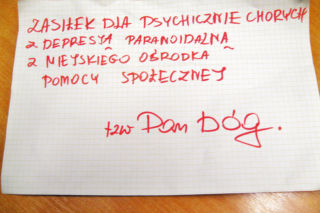 ZASIŁEK DLA PSYCHICZNIE CHORYCH
Z DEPRESJĄ PARANOIDALNĄ
Z MIEJSKIEGO OŚRODKA
POMOCY SPOŁECZNEJ
tzw Pan Bóg.